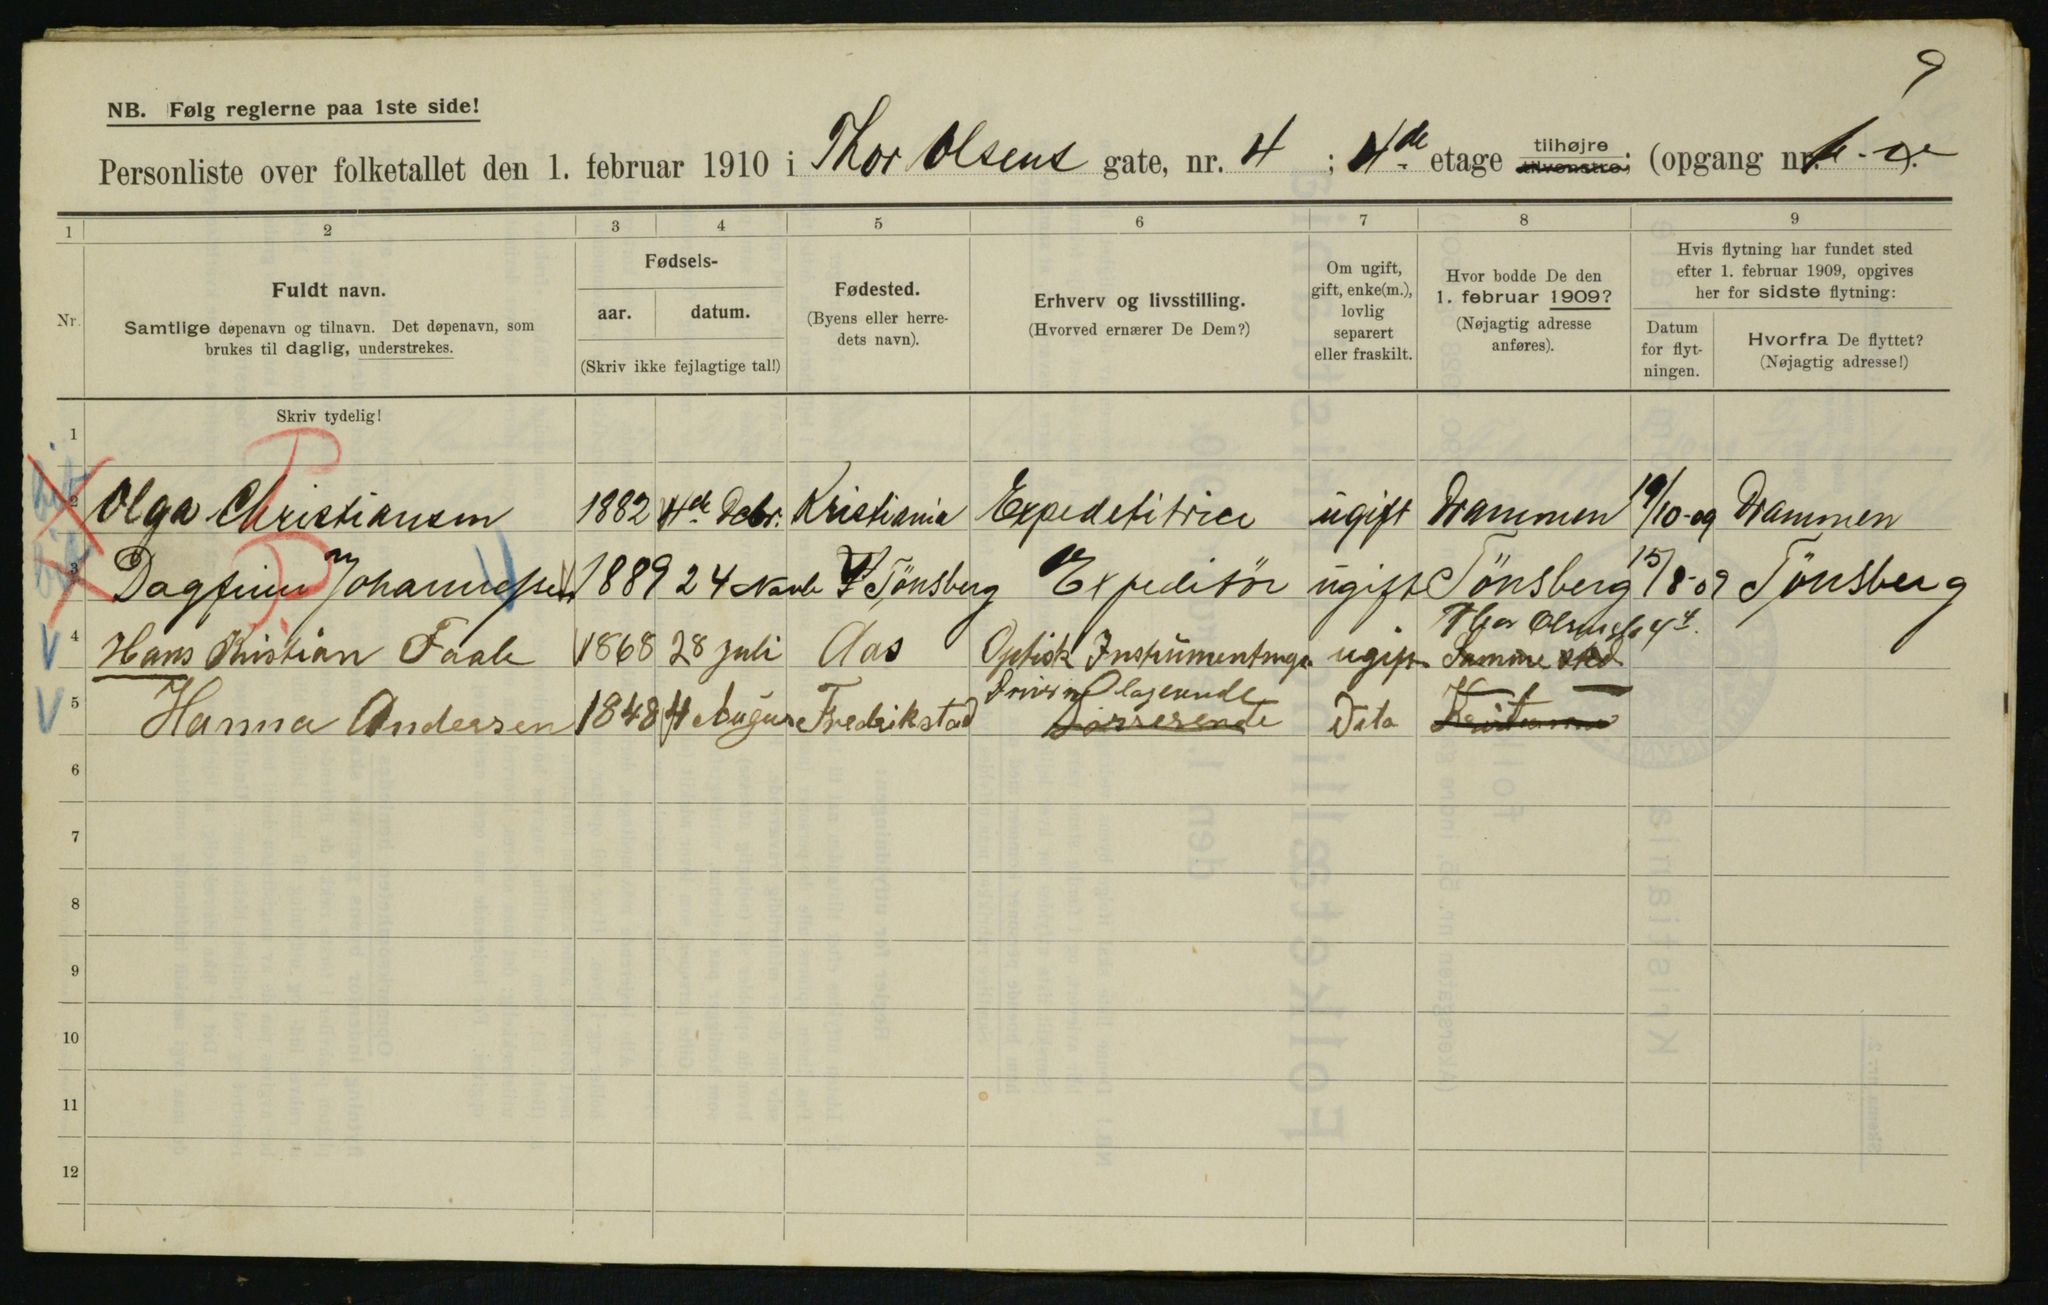 9
NB. Følg reglerne paa 1ste side!
Personliste over folketallet den 1. februar 1910 i Thor Olsens gate, nr. 4 ; 4de etage tilhøjre tilvenstre; (opgang nr. ).
1 2 3 4 5 6 7 8 9
Nr.
Fuldt navn.
Samtlige døpenavn og tilnavn. Det døpenavn, som
brukes til daglig, understrekes.
Fødsels-
aar. datum.
(Skriv ikke fejlagtige tal!)
Fødested.
(Byens eller herre-
dets navn).
Erhverv og livsstilling.
(Hvorved ernærer De Dem?)
Om ugift,
gift, enke(m.),
lovlig
separert
eller fraskilt.
Hvor bodde De den
1. februar 1909?
(Nøjagtig adresse
anføres).
Hvis flytning har fundet sted
efter 1. februar 1909, opgives
her for sidste flytning:
Datum
for flyt-
ningen.
Hvorfra De flyttet?
(Nøjagtig adresse!)
Skriv tydelig!
1
2 Olga Christiansen 1882 4de Debr. Kristiania Expedetitrice ugift Drammen 19/10-09 Drammen
3 Dagfinn Johannessen 1889 24 Novb Tönsberg Expeditör ugift Tönsberg 15/8-09 Tönsberg
4 Hans Kristian Faale 1868 28 juli Aas Optisk Instrumentmager ugift Thor Olsensg 4 Samme sted
5 Hanna Andersen 1848 4 August Fredrikstad Data Kristiania
6
7
8
9
10
11
12